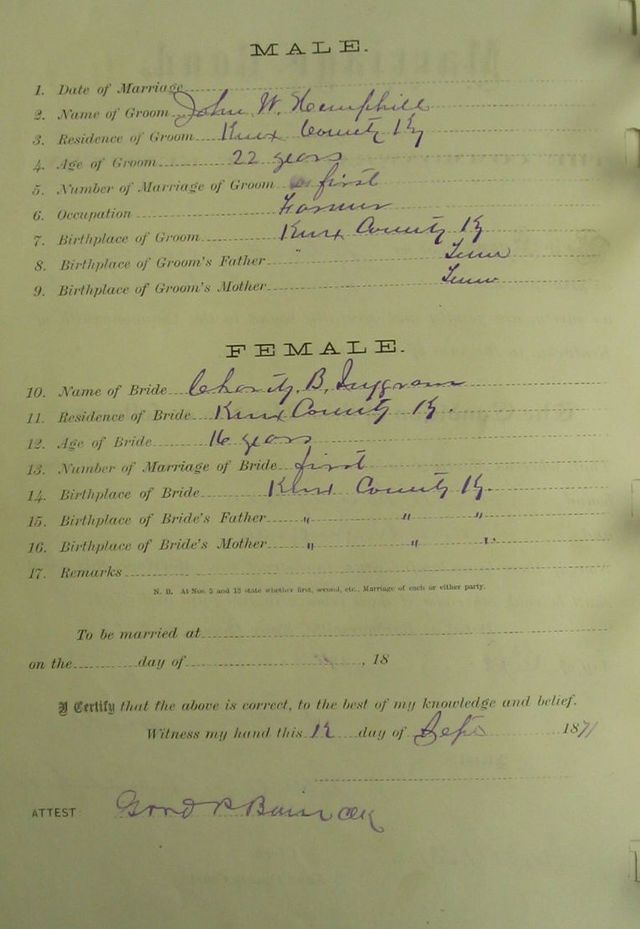 MALE.
1. Date of Marriage
2. Name of Groom John W. Hemphill
3. Residence of Groom Knox County Ky
4. Age of Groom 22 years
5. Number of Marriage of Groom first
6. Occupation Farmer
7. Birthplace of Groom Knox County Ky
8. Birthplace of Groom's Father " Tenn
9. Birthplace of Groom's Mother Tenn
FEMALE.
10. Name of Bride Charity B. Ingram
11. Residence of Bride Knox County Ky.
12. Age of Bride 16 years
13. Number of Marriage of Bride first
14. Birthplace of Bride Knox County Ky.
15. Birthplace of Bride's Father " " "
16. Birthplace of Bride's Mother " " "
17. Remarks
N. B. At Nos. 5 and 13 state whether first, second, etc., Marriage of each or either party.
To be married at
on the day of , 18
I Certify that the above is correct, to the best of my knowledge and belief.
Witness my hand this 12 day of Sept 1871
ATTEST